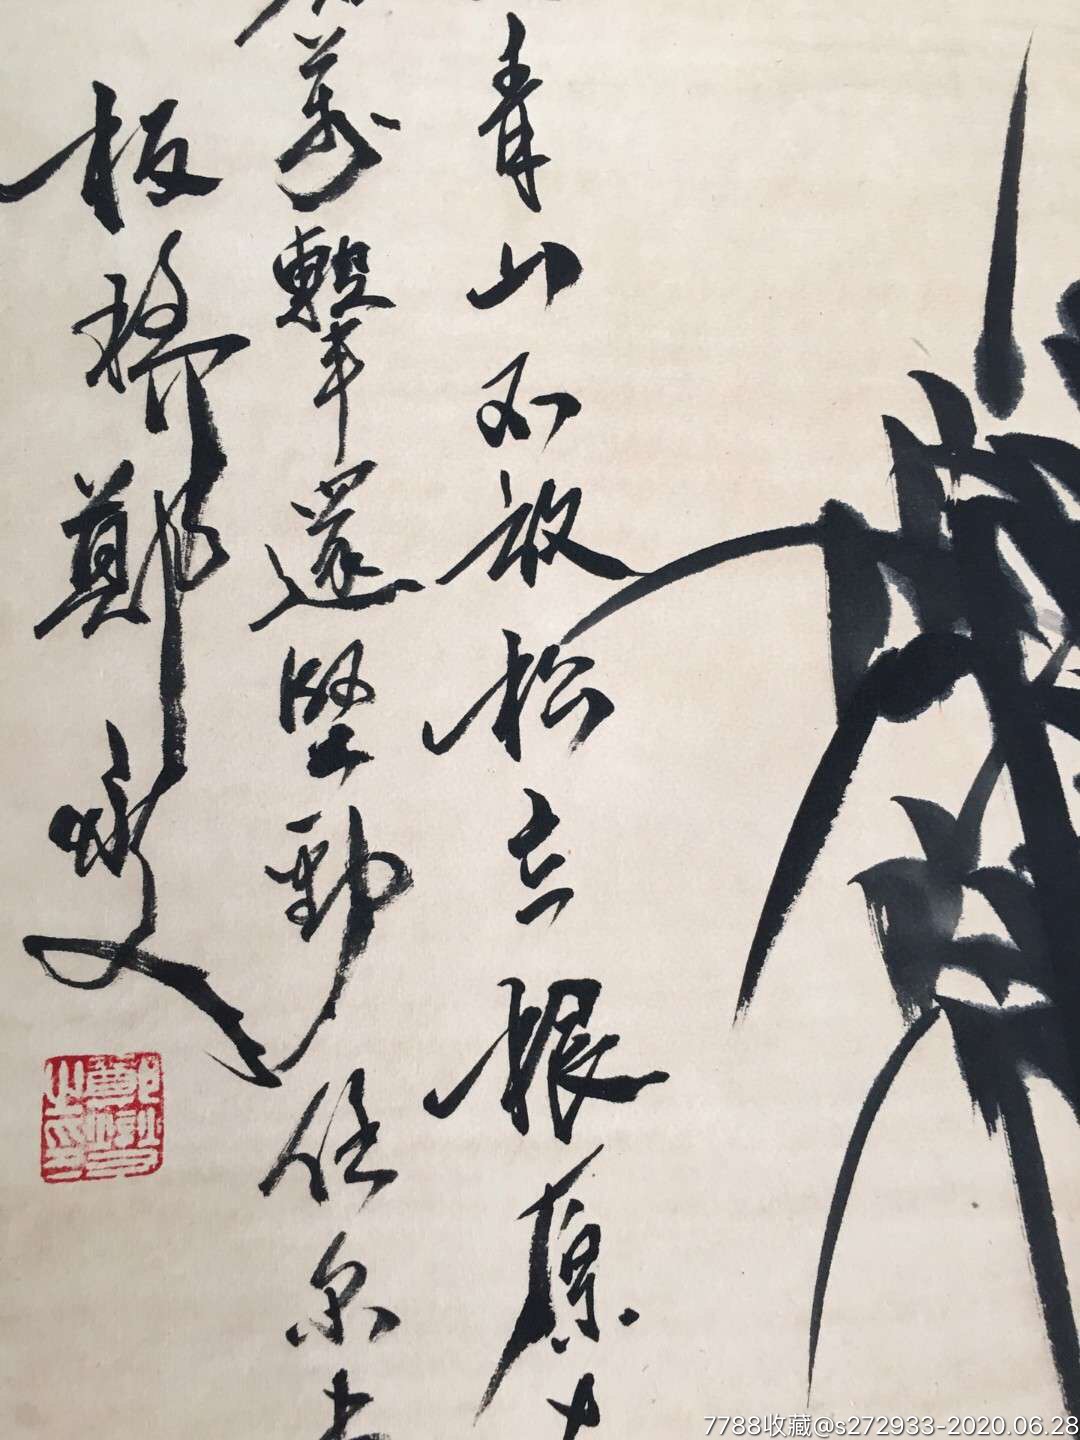 青山不放松立根原
萬擊還堅勁任尔
板橋鄭燮
7788收藏@s272933-2020.06.28